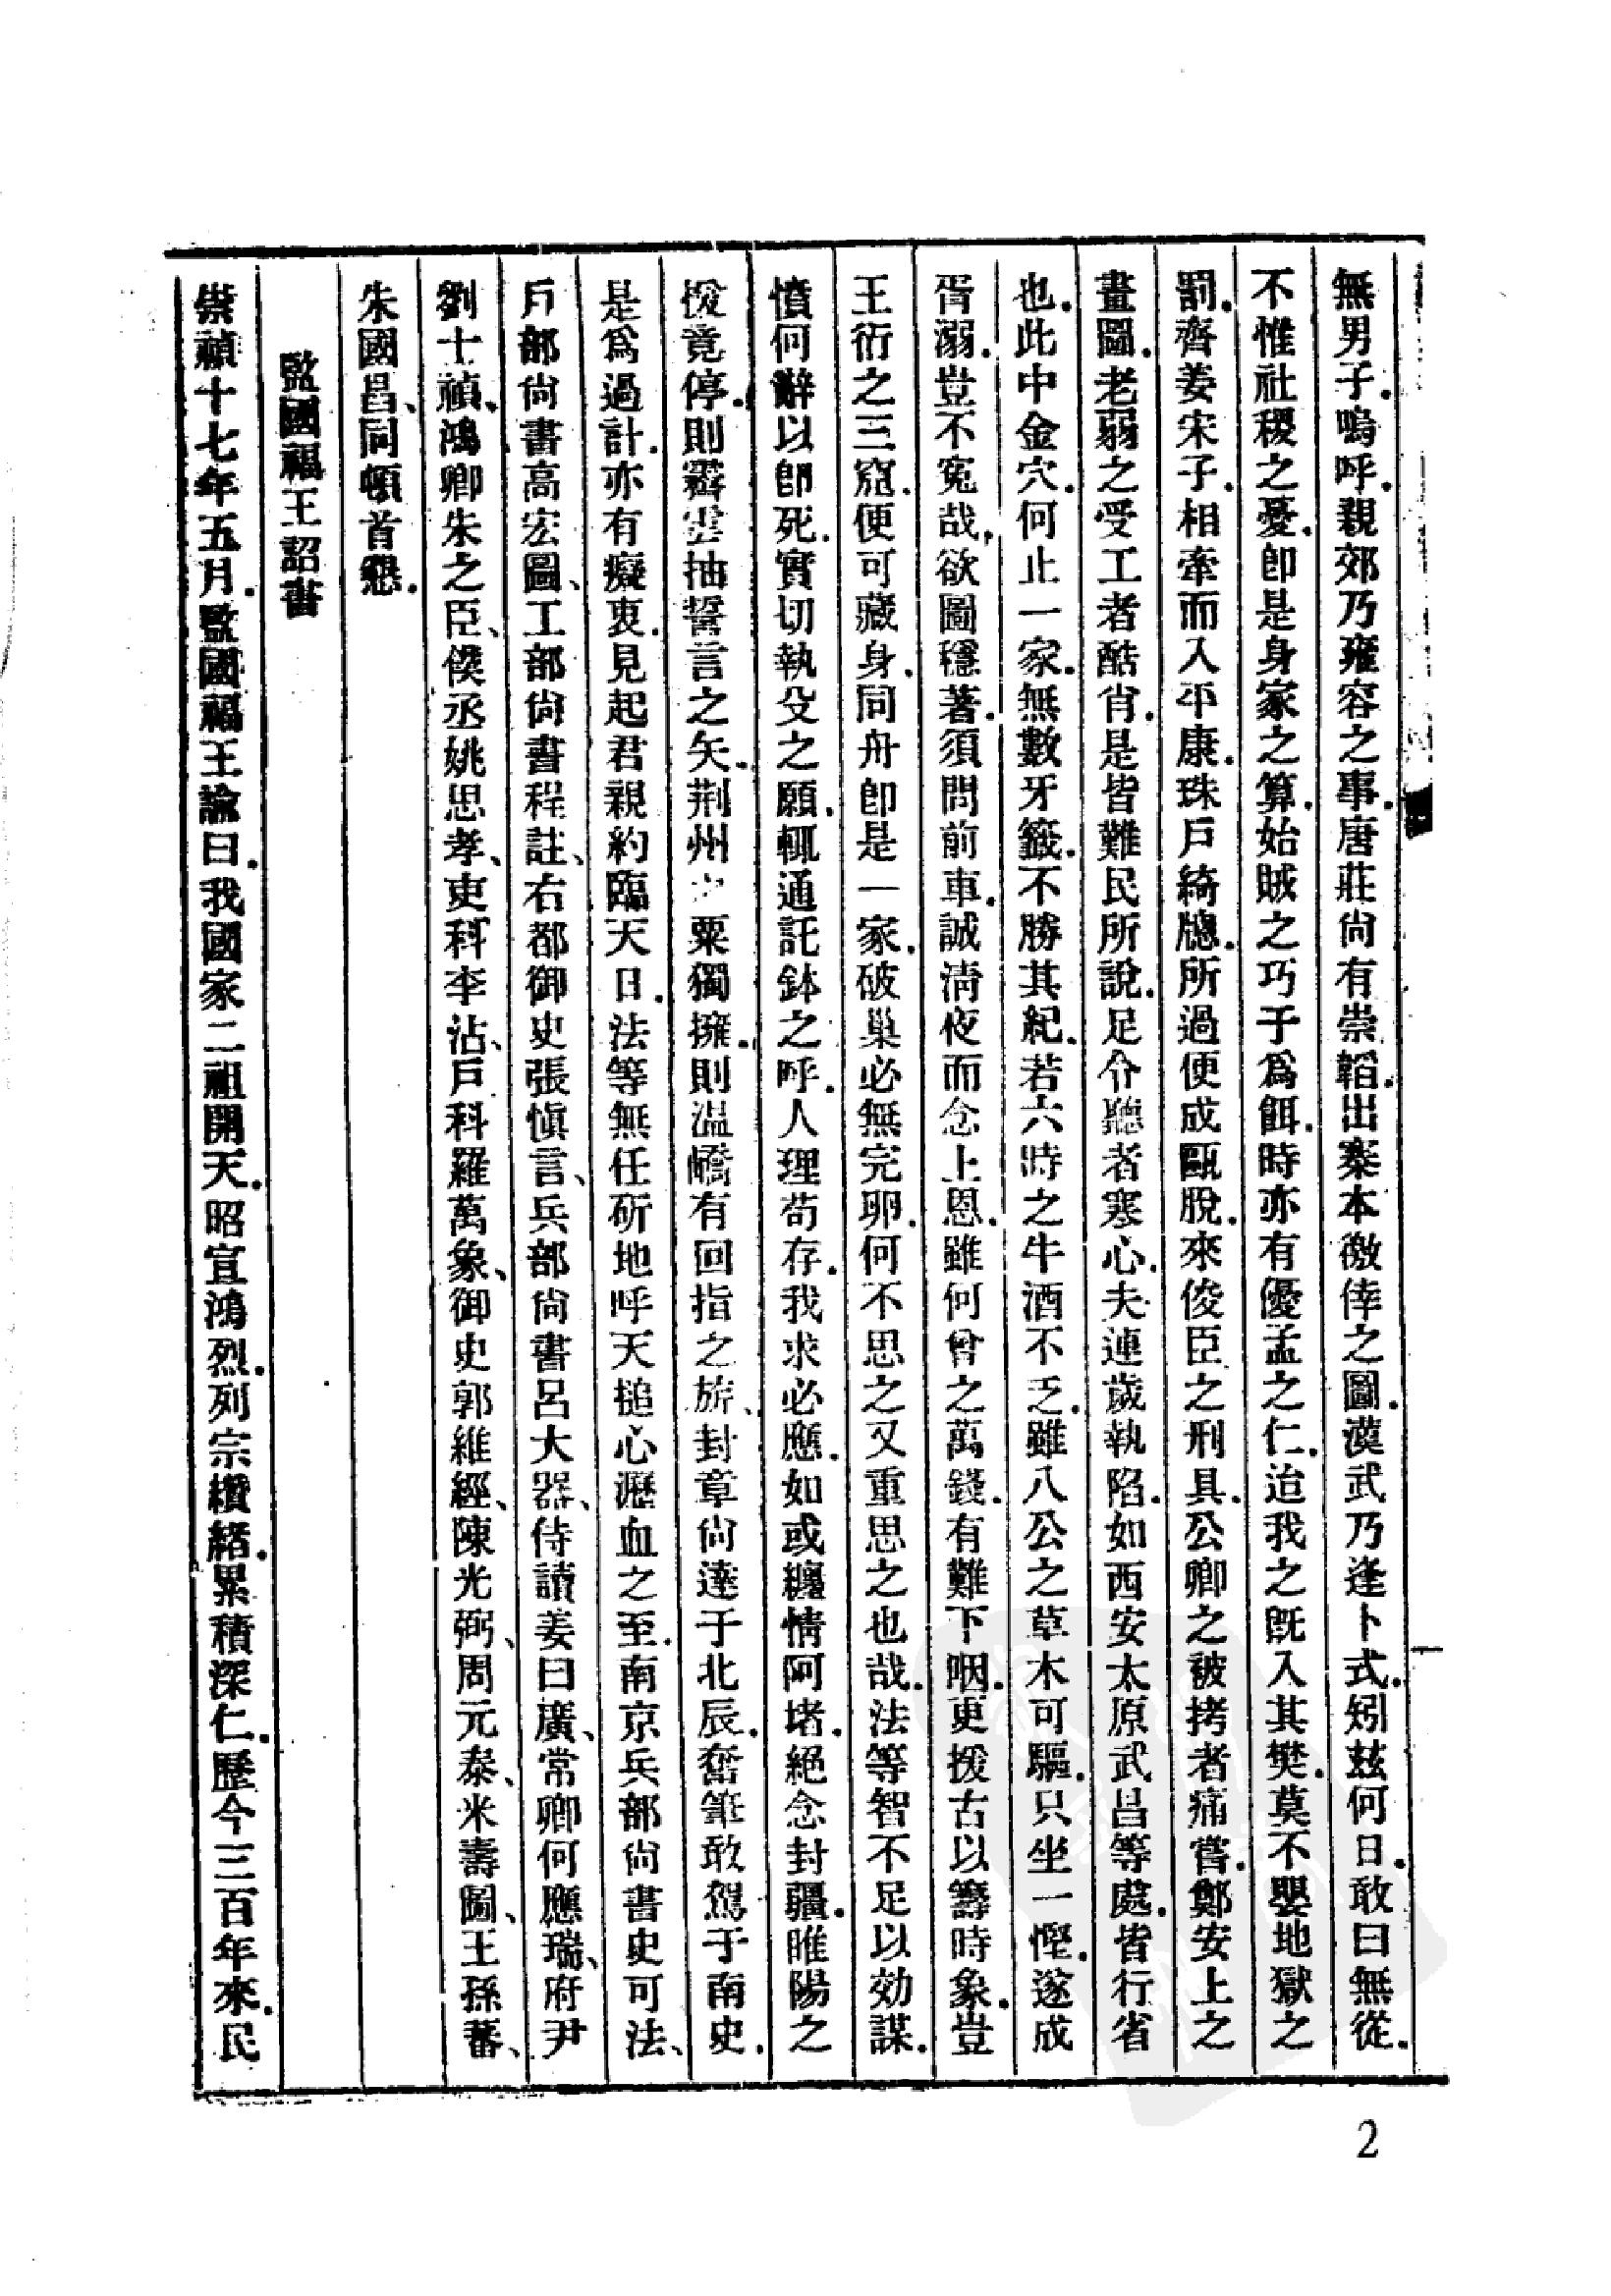 無男子.嗚呼.親郊乃雍容之事.唐莊尙有崇韜.出塞本徼倖之圖.漢武乃逢卜式.矧玆何日.敢曰無從.
不惟社稷之憂.卽是身家之算.始賊之巧于爲餌.時亦有優孟之仁.迨我之旣入其樊.莫不嬰地獄之
罰.齊姜宋子.相牽而入平康.珠戶綺牕.所過便成甌脫.來俊臣之刑具.公卿之被拷者痛嘗.鄭安上之
畫圖.老弱之受工者酷肖.是皆難民所說.足令聽者寒心.夫連歲執陷.如西安太原武昌等處.皆行省
也.此中金穴.何止一家.無數牙籤.不勝其紀.若六時之牛酒不乏.雖八公之草木可驅.只坐一慳.遂成
胥溺.豈不寃哉.欲圖穩著.須問前車.誠淸夜而念上恩.雖何曾之萬錢.有難下咽.更援古以籌時象.豈
王衍之三窟.便可藏身.同舟卽是一家.破巢必無完卵.何不思之又重思之也哉.法等智不足以効謀.
憤何辭以卽死.實切執殳之願.輒通託鉢之呼.人理苟存.我求必應.如或纏情阿堵.絕念封疆.睢陽之
援竟停.則霽雲抽誓言之矢.荆州之粟獨擁.則溫嶠有回指之旂、封章尙達于北辰.奮筆敢駕于南史.
是爲過計.亦有癡衷.見起君親.約臨天日.法等無任斫地呼天搥心瀝血之至.南京兵部尙書史可法、
戶部尙書高宏圖、工部尙書程註、右都御史張愼言、兵部尙書呂大器、侍讀姜曰廣、常卿何應瑞、府尹
劉士禎、鴻卿朱之臣、僕丞姚思孝、吏科李沾、戶科羅萬象、御史郭維經、陳光弼、周元泰、米壽圖、王孫蕃、
朱國昌、同頓首懇.
監國福王詔書
崇禎十七年五月.監國福王諭曰.我國家二祖開天.昭宣鴻烈.列宗纘緒.累積深仁.歷今三百年來.民
2